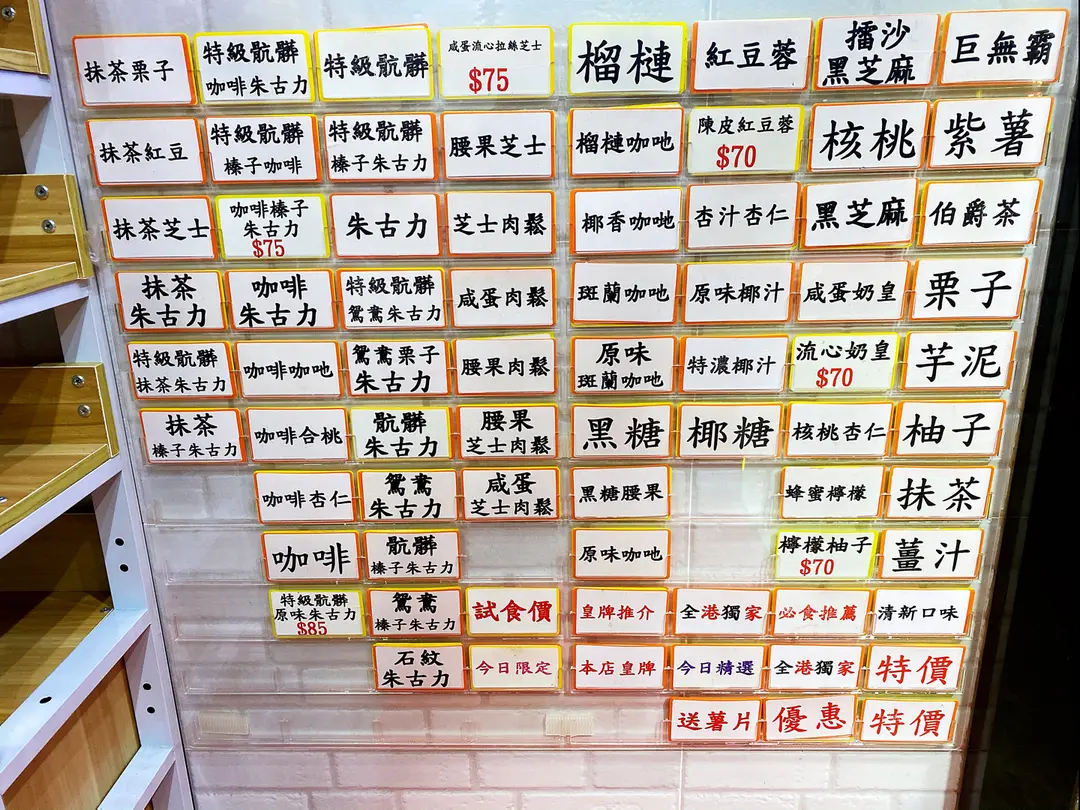 抹茶栗子
特級骯髒
咖啡朱古力
特級骯髒
咸蛋流心拉絲芝士
$75
榴槤
紅豆蓉
擂沙
黑芝麻
巨無霸
抹茶紅豆
特級骯髒
榛子咖啡
特級骯髒
榛子朱古力
腰果芝士
榴槤咖吔
陳皮紅豆蓉
$70
核桃
紫薯
抹茶芝士
咖啡榛子
朱古力
$75
朱古力
芝士肉鬆
椰香咖吔
杏汁杏仁
黑芝麻
伯爵茶
抹茶
朱古力
咖啡
朱古力
特級骯髒
鴛鴦朱古力
咸蛋肉鬆
斑蘭咖吔
原味椰汁
咸蛋奶皇
栗子
特級骯髒
抹茶朱古力
咖啡咖吔
鴛鴦栗子
朱古力
腰果肉鬆
原味
斑蘭咖吔
特濃椰汁
流心奶皇
$70
芋泥
抹茶
榛子朱古力
咖啡合桃
骯髒
朱古力
腰果
芝士肉鬆
黑糖
椰糖
核桃杏仁
柚子
咖啡杏仁
鴛鴦
朱古力
咸蛋
芝士肉鬆
黑糖腰果
蜂蜜檸檬
抹茶
咖啡
骯髒
榛子朱古力
原味咖吔
檸檬柚子
$70
薑汁
特級骯髒
原味朱古力
$85
鴛鴦
榛子朱古力
試食價
皇牌推介
全港獨家
必食推薦
清新口味
石紋
朱古力
今日限定
本店皇牌
今日精選
全港獨家
特價
送薯片
優惠
特價